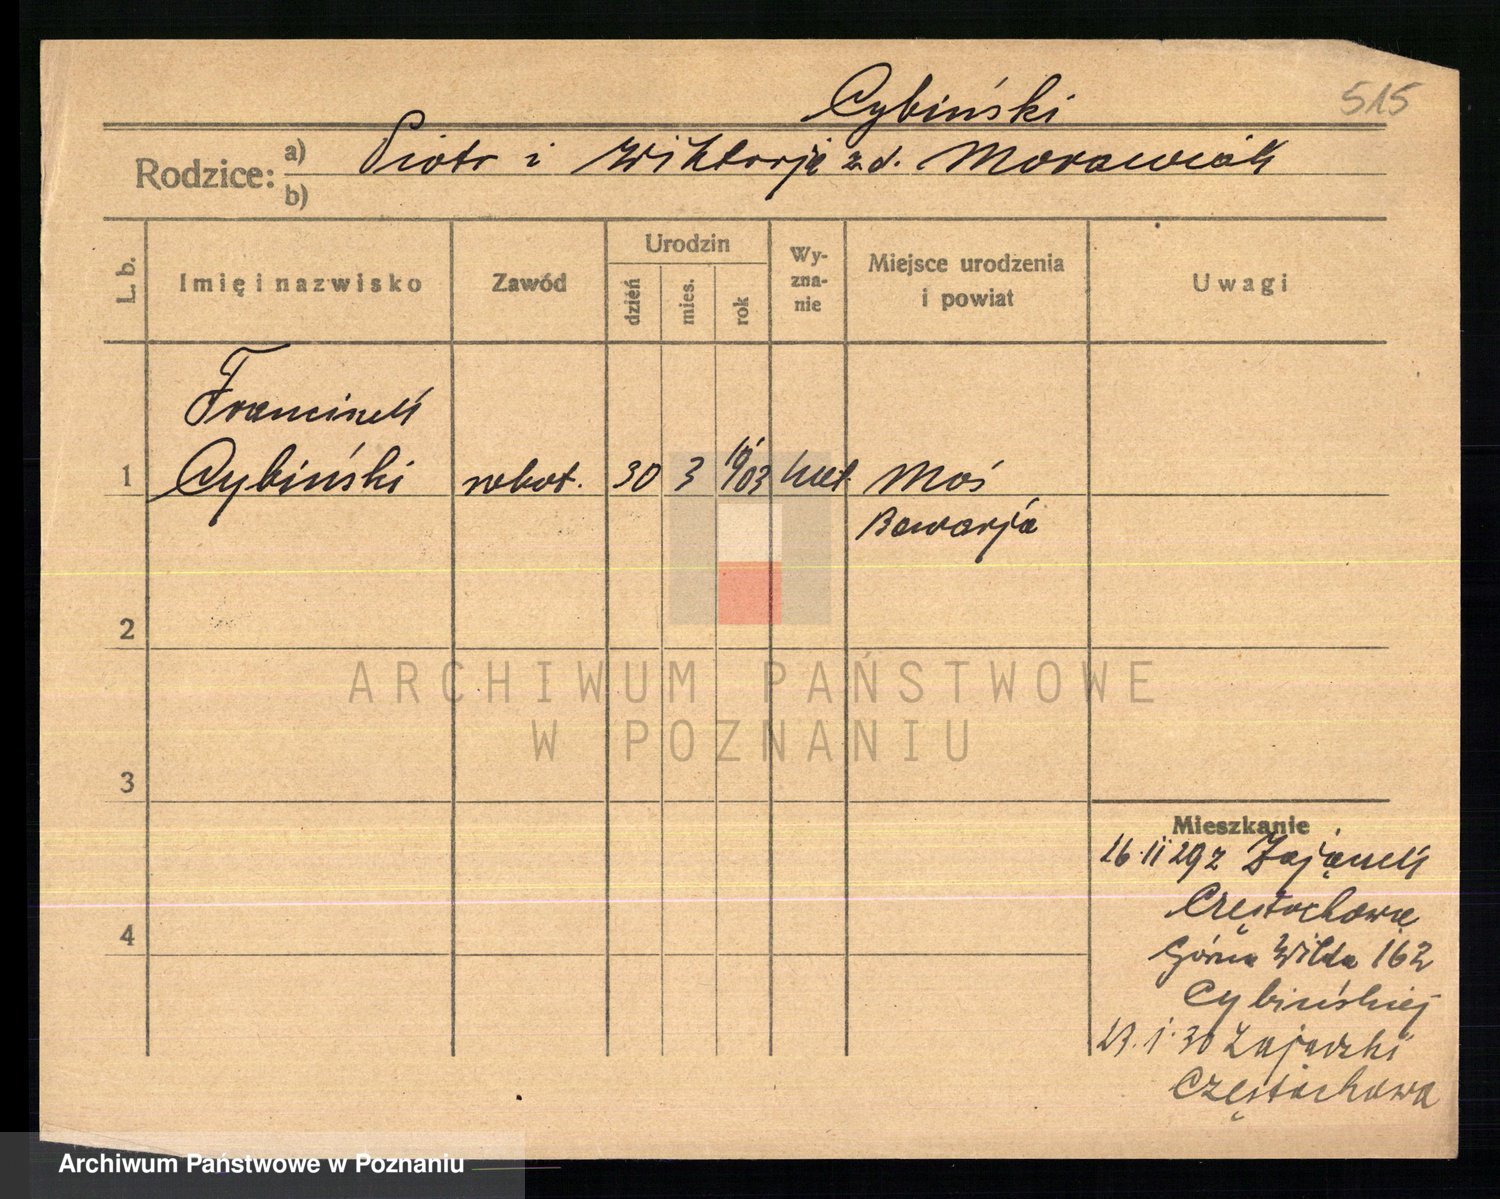 Cybiński
515
Rodzice: a) Piotr i Wiktorja z d. Morawiak
b)
L. b.
Imię i nazwisko
Zawód
Urodzin
dzień
mies.
rok
Wy-
zna-
nie
Miejsce urodzenia
i powiat
Uwagi
Franciszek
1 Cybiński robot. 30 3 1903 kat. Moś
Bawarja
2
ARCHIWUM PAŃSTWOWE
W POZNANIU
3
Mieszkanie
26.11 29 z
Częstochowa
Górna Wilda 162
Cybińskiej
23.1.30
Częstochowa
4
Archiwum Państwowe w Poznaniu